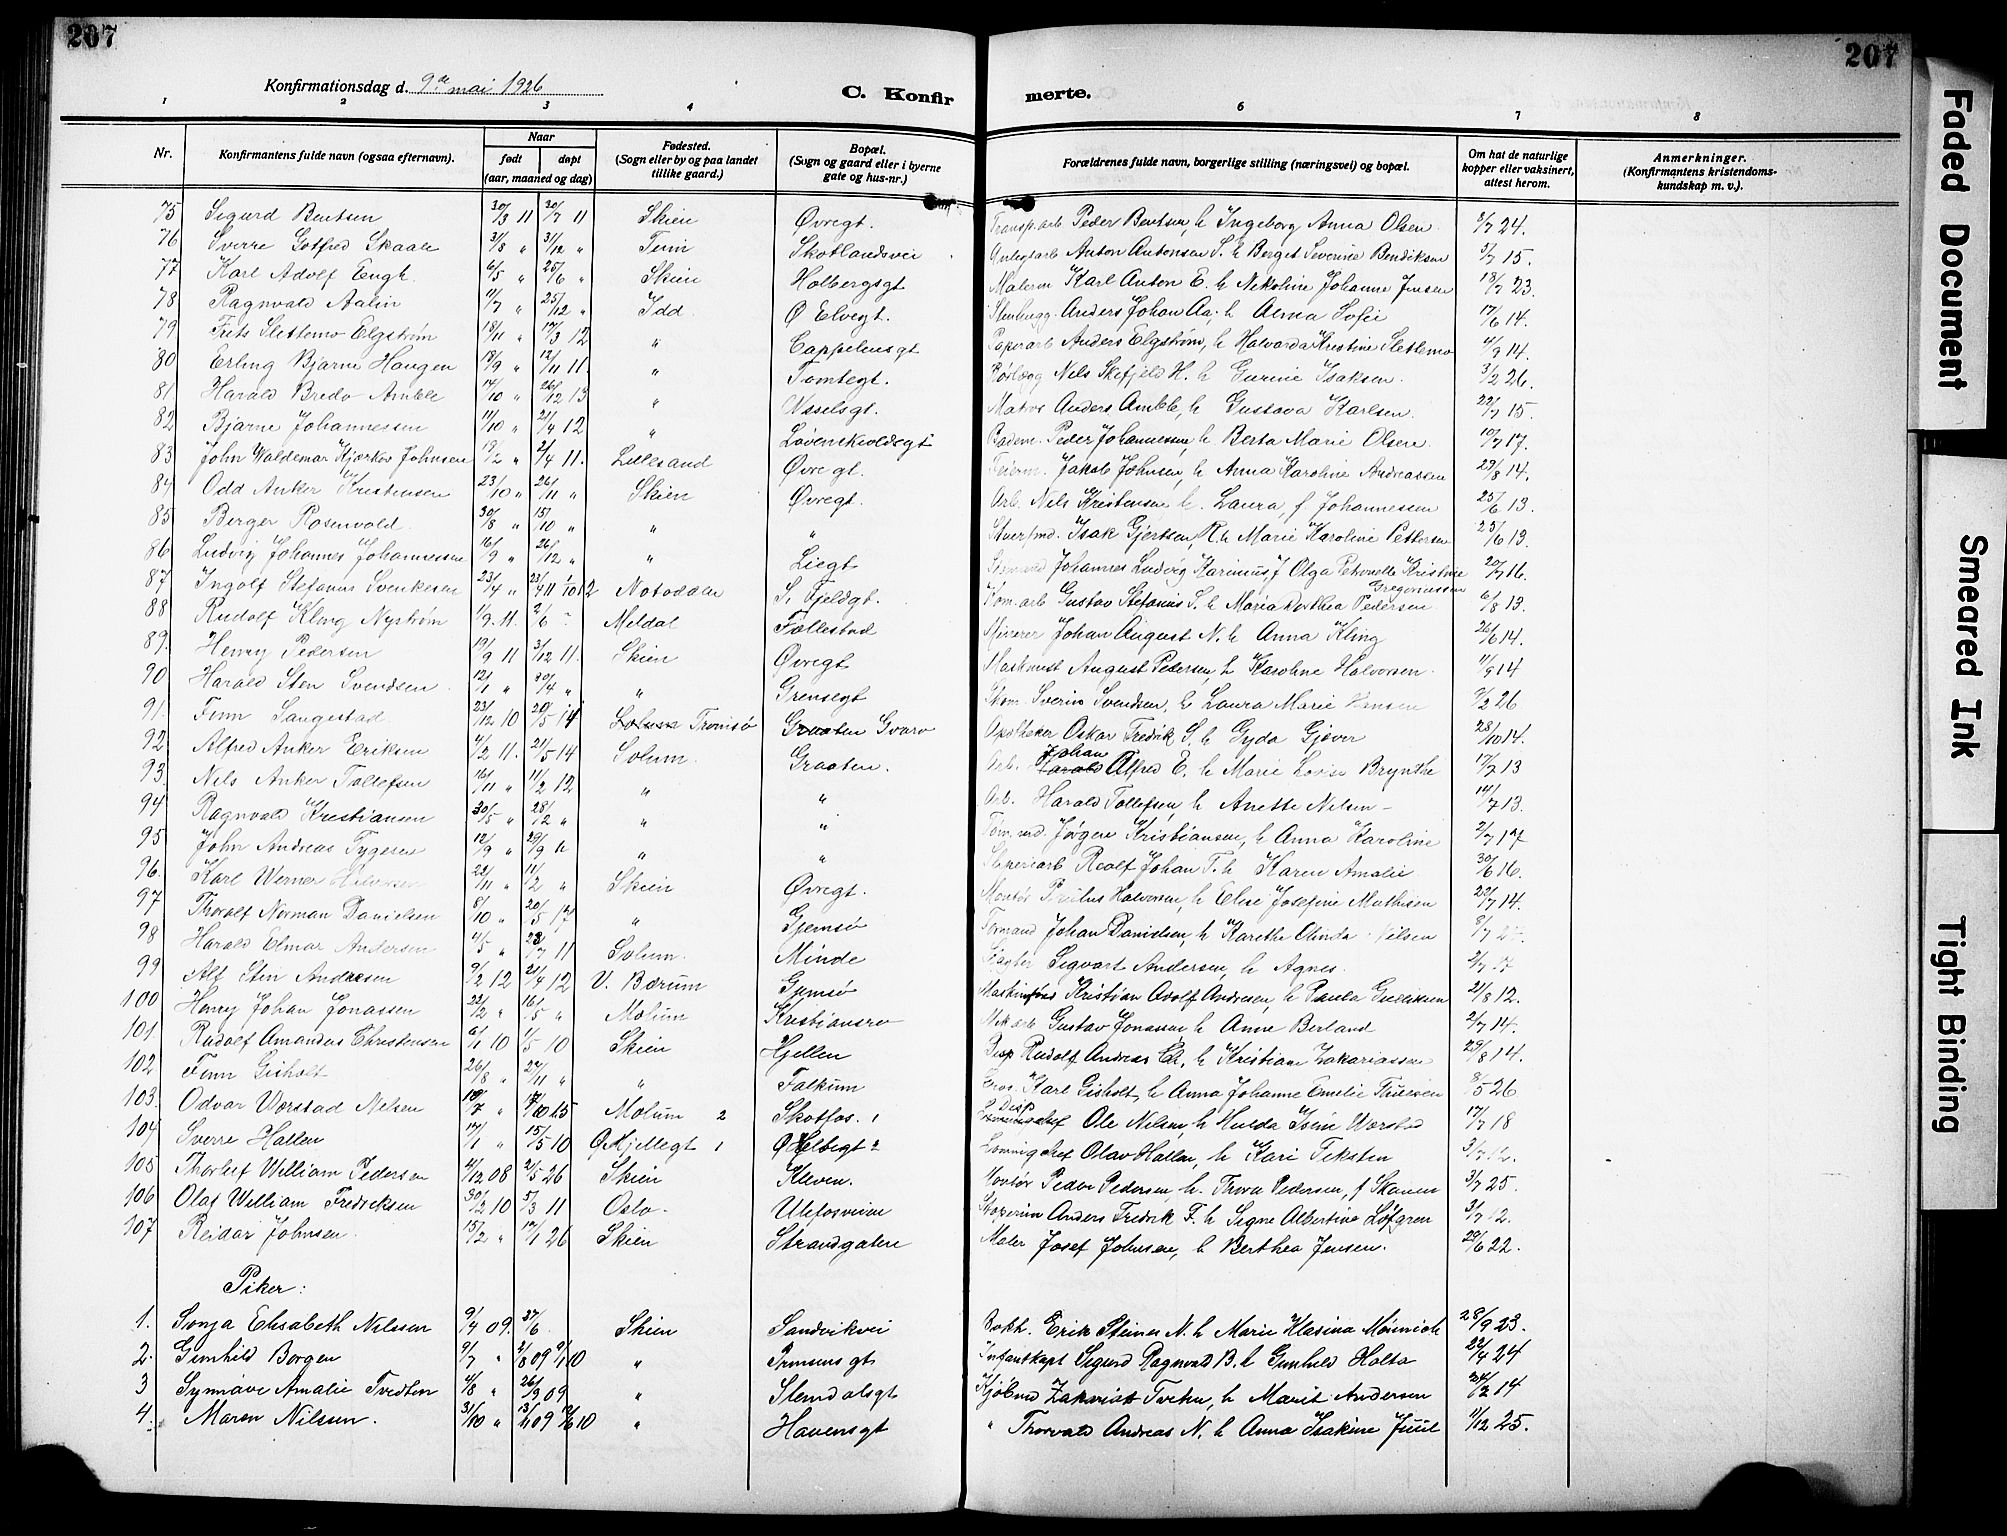 207
207
Konfirmationsdag d. 9de mai 1926
C. Konfir merte.
1 2 3 4 6 7 8
Nr. Konfirmantens fulde navn (ogsaa efternavn). Naar født døpt (aar, maaned og dag) Fødested. (Sogn eller by og paa landet tillike gaard.) Bopæl. (Sogn og gaard eller i byerne gate og hus-nr.) Forældrenes fulde navn, borgerlige stilling (næringsvei) og bopæl. Om hat de naturlige kopper eller vaksinert, attest herom. Anmerkninger. (Konfirmantens kristendoms-kundskap m. v.).
75 Sigurd Bentsen 30/3 11 30/7 11 Skien Øvregt. Transp.arb Peder Bentsen, h Ingeborg Anna Olsen 24.
76 Sverre Gotfred Skaale 3/8 " 31/12 " Tinn Skotlandsvei Anton Antonsen S. h Berget Severine Bendiksen 15.
77 Karl Adolf Engh 6/5 " 25/6 " Skien Holbergsgt Malerm Karl Anton E. h Nikoline Johanne Jensen 18/7 23.
78 Ragnvald Aalin 11/7 " 25/12 " Idd Ø Elvegt. Stenhugg. Anders Johan Aa. h Alma Sofie 17/6 14.
79 Frits Slettemo Elgstrøm 18/11 " 17/3 12 " Cappelensgt Papirarb Anders Elgstrøm, h Halvarda Kristine Slettemo 4/9 14.
80 Erling Bjarne Haugen 18/9 " 12/11 11. " Tomtegt. Rørlæg Nils Skefjeld H. h Gurine Isaksen. 3/2 26.
81 Harald Bredo Amble 14/10 " 26/12 13 " Wesselsgt. Anders Amble, h Gustava Karlsen. 22/7 15.
82 Bjarne Johannessen 11/10 " 21/4 12 " Løvenskioldsgt Badem. Peder Johannessen, h Berta Marie Olsen. 10/7 17.
83 John Waldemar Kjørkov Johnsen 19/2 " 2/4 11. Lillesand Øvregt. Feierm. Jakob Johnsen, h Anna Karoline Andreassen 29/8 14.
84 Odd Anker Kristensen 23/10 " 26/11 " Skien Øvregt. Arb. Nils Kristensen h. Laura, f. Johannessen 25/6 13.
85 Berger Rosenvold. 30/8 " 15/10 " " " Isak Gjertsen, R. h Marie Karoline Pettersen 25/6 13.
86 Ludvig Johannes Johannessen 16/9 " 26/12 " " Liegt Johannes Ludvig Karinius J Olga Petronelle Kristine Gregoriussen 20/7 16.
87 Ingolf Stefanus Svenkesen 23/4 " 23/4 11 1/10 12 Notodden S. Fjeldgt. Kom.arb Gustav Stefanius S. h Maria Dorthea Pedersen 6/8 13.
88 Rudolf Kling Nystrøm 11. 2/6 - Meldal Follestad Minerer Johan August N. h Anna Kling 26/6 14.
89. Henry Pedersen 19/9 11 3/12 11. Skien Øvregt Maskinist August Pedersen, h Karoline Halvorsen. 11/9 14
90 Harald Sten Svendsen. 12/1 " 30/4 " " Grensegt Skom. Sverin Svendsen, h Laura Marie Hansen 26
91. Finn Saugestad 23/12 10 20/5 14 Tromsø Graaten Gvarv Apotheker Oskar Fredrik S. h Gyda Gjæver 28/10 14.
92 Alfred Anker Eriksen 4/2 11. 21/5 14 Solum. Graaten. Arb. Johan Alfred E. h Marie Lovise Brynthe 17/7 13
93. Nils Anker Tollefsen 16/11 " 11/2 12 " " Arb. Harald Tollefsen, h Anette Nilsen - 14/7 13.
94 Ragnvald Kristiansen 30/5 " 28/2 " " " Tøm.md. Jørgen Kristiansen, h Anna Karoline 2/7 17
95 John Andreas Tygesen 12/9 " 29/9 " " " Sliperiarb Realf Johan T. h Karen Amalie 30/6 16.
96. Karl Werner Halvorsen 22/11 " 11/2 " Skien Øvregt. Montør Halvorsen, h Elise Josefine Mathisen 22/7 14.
97 Thoralf Norman Danielsen 8/10 " 20/5 17 " Gjemsø Formand Johan Danielsen, h Karethe Olinda Nilsen 8/7
98 Harald Elmar Andersen 4/5 " 23/7 11 Solum. Minde Slagter Sigvart Andersen, h Agnes. 2/7 17
99 Alf Sten Andresen 9/2 12 21/4 12 V. Bærum Gjemsø Kristian Adolf Andresen, h Paula Gulliksen 21/8 12.
100 Henry Johan Jonassen 22/2 " 16/5 " Molum Kristiansro Mek arb Gustav Jonassen h Anne Berland 2/7 14.
101 Rudolf Amandus Christensen 6/1 10 1/5 10 Skien Hjellen Disp Rudolf Andreas Ch. h Kristiane Zakariassen 29/8 14.
102 Finn Gisholt 26/8 " 27/11 " " Falkum Karl Gisholt, h Anna Johanne Emelie Thuesen 8/5 26
103. Odvar Worstad Nelsen 10/7 " 25 Molum 2 Skotfos. 1 Disp Ole Nilsen, h Hulda Isine Worstad 17/7 18
104 Sverre Hallen 17/1 " 15/5 10 Ø Hjellegt 1 Ø Helbigt 2 Lovning chef Olav Hallen, h Kari Teksten 3/7 12.
105 Thorlief William Pedersen 4/12 08 2/5 26 Skien Kleven. Montør Peder Pedersen, h. Thora Pedersen, f Skauen 3/7 25.
106 Olaf William Fredriksen 30/12 10 5/3 11 Oslo. Ulefosveien Anders Fredrik F. h Signe Albertine Løfgren 3/7 12.
107 Reidar Johnsen. 15/2 " 17/1 26 Skien Strandgaten Maler Josef Johnsen, h Berthea Jensen. 29/6 22.
Piker:
1. Sonja Elisabeth Nilssen 9/4 09. 27/6. Skien Sandvikvei Bokh. Erik Steiner N. h Marie Klasina Mönnich 28/9 23.
2. Gunhild Borgen 9/7 " 2/8 09 9/1 10 " Prinsensgt Infantkapt Sigurd Ragnvald B. h Gunhild Holta 22/4 24
3 Synnøve Amalie Tvedten 4/8 " 26/9 09 " Stemdalsgt Kjøbmd Zakarias Tveten, h Marit Andersen 24/2 14
4. Maren Nilssen. 31/10 " 13/11 09 12/6 10 " Havensgt " Thorvald Andreas N. h Anna Isakine Juul 11/12 25.
Faded Document
Smeared Ink
Tight Binding